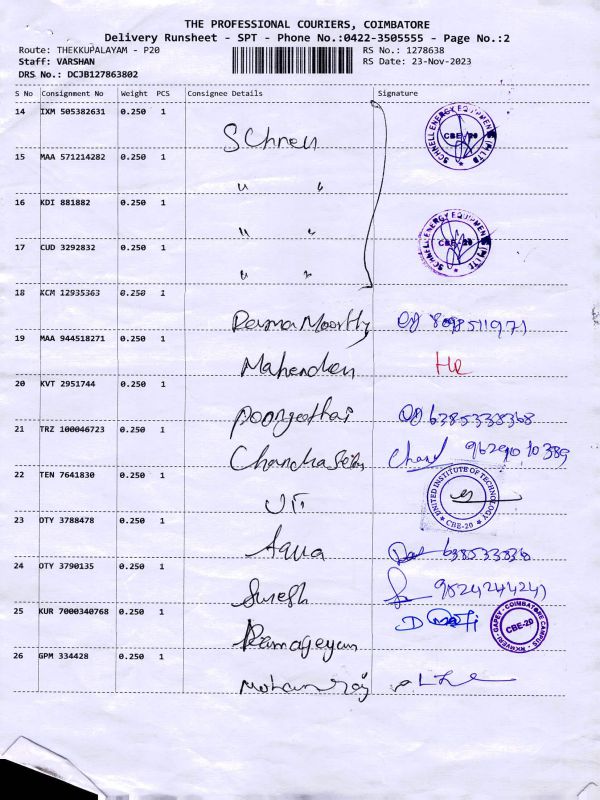 THE PROFESSIONAL COURIERS, COIMBATORE
Delivery Runsheet - SPT - Phone No.:0422-3505555 - Page No.:2
Route: THEKKUPALAYAM - P20 RS No.: 1278638
Staff: VARSHAN RS Date: 23-Nov-2023
DRS No.: DCJB127863802
S No Consignment No Weight PCS Consignee Details Signature
14 IXM 505382631 0.250 1 Schnell
SCHNELL ENERGY EQUIPMENTS (P) LTD CBE-20
15 MAA 571214282 0.250 1 " "
16 KDI 881882 0.250 1 " "
SCHNELL ENERGY EQUIPMENTS (P) LTD CBE-20
17 CUD 3292832 0.250 1 " "
18 KCM 12935363 0.250 1 Rama Moorthy 8098511971
19 MAA 944518271 0.250 1 Mahendran
20 KVT 2951744 0.250 1 Poongothai 6385333368
21 TRZ 100046723 0.250 1 Chandrasekar 9629010389
22 TEN 7641830 0.250 1 UIT
UNITED INSTITUTE OF TECHNOLOGY CBE-20
23 OTY 3788478 0.250 1 Aqua
24 OTY 3790135 0.250 1 Suresh
25 KUR 7000340768 0.250 1 Ramageyan
COIMBATORE CAMPUS CBE-20
26 GPM 334428 0.250 1 Mohanraj